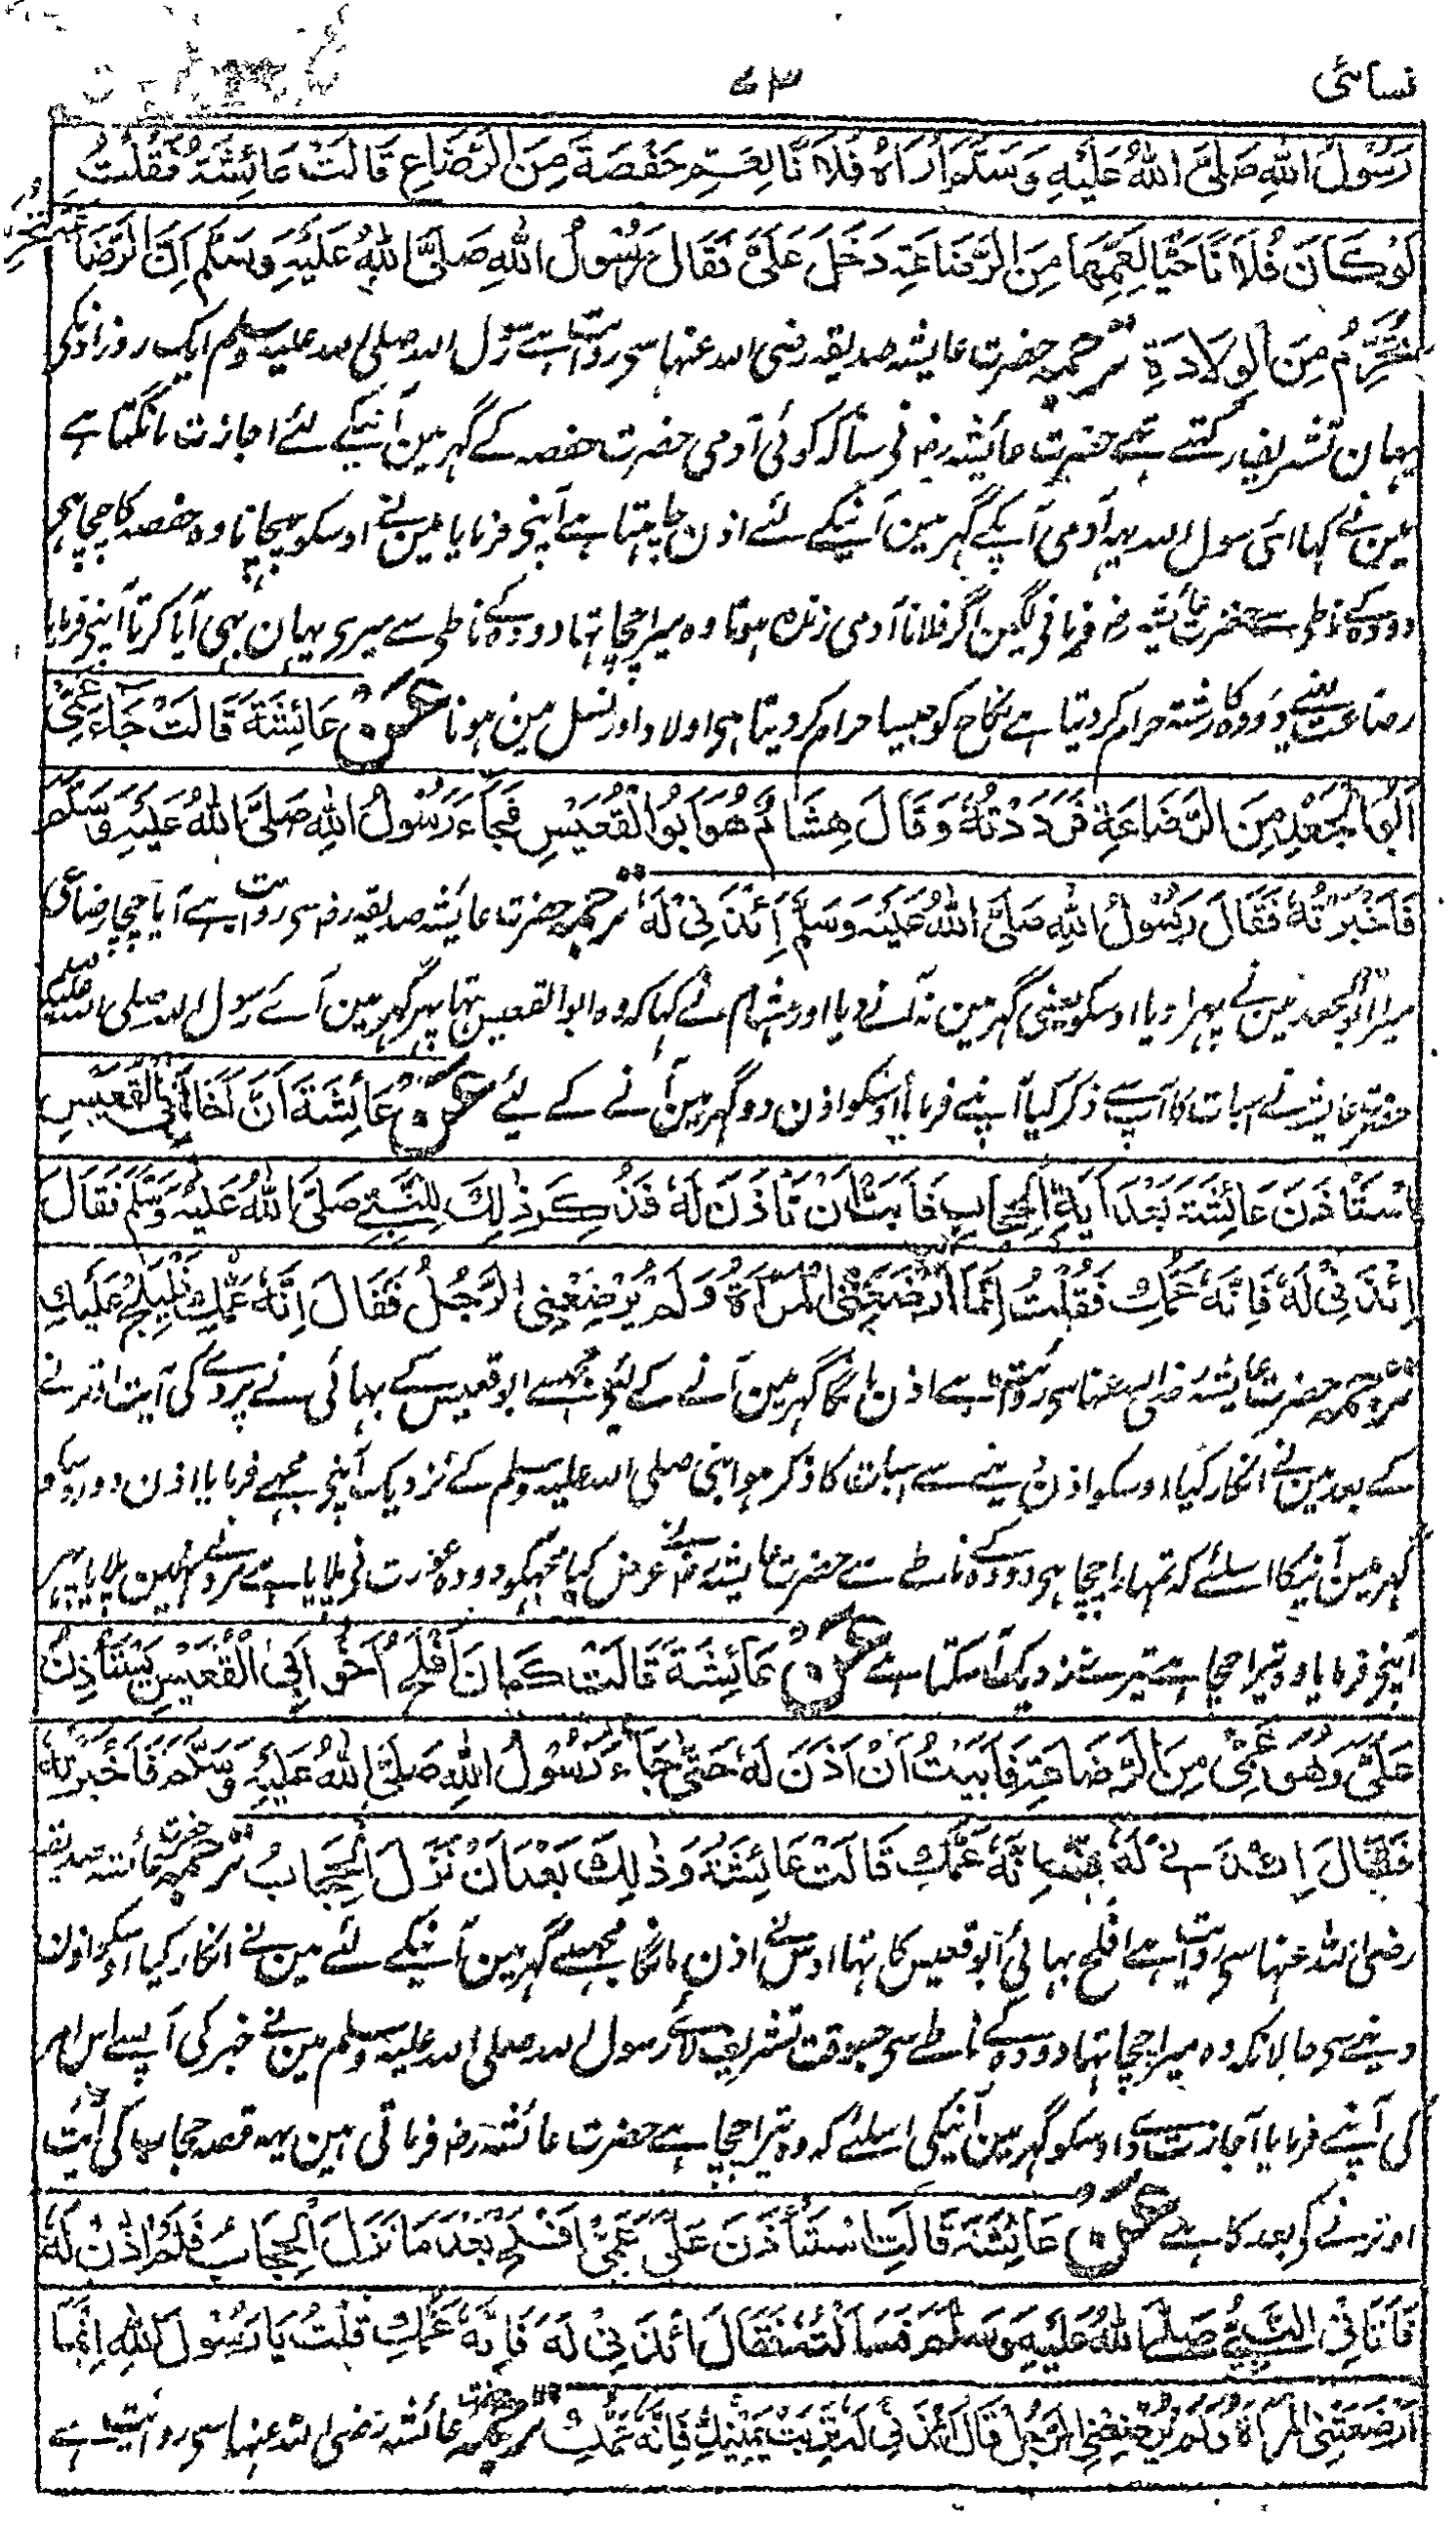 نسائی
٧٣
رَسُوْلُ اللهِ صَلَّى اللهُ عَلَيْهِ وَسَلَّمَ اُرَاهُ فُلَانًا لِعَمِّ حَفْصَةَ مِنَ الرَّضَاعِ قَالَتْ عَائِشَةُ فَقُلْتُ
لَوْ كَانَ فُلَانًا حَيًّا لِعَمِّهَا مِنَ الرَّضَاعَةِ دَخَلَ عَلَيَّ فَقَالَ رَسُوْلُ اللهِ صَلَّى اللهُ عَلَيْهِ وَسَلَّمَ اِنَّ الرَّضَاعَةَ تُحَرِّمُ
مَا يُحَرَّمُ مِنَ الْوِلَادَةِ ترجمہ حضرت عایشہ صدیقہ رضی اللہ عنہا سی روایت ہے رسول اللہ صلی اللہ علیہ وسلم ایک روز اونکی
یہان تشریف رکتے تہے حضرت عائشہ رض نی سنا کہ کوئی آدمی حضرت حفصہ کے گہر مین آنیکے لئے اجازت مانگتا ہے
مین نے کہا ای رسول اللہ یہہ آدمی آپکے گہر مین آنیکے لئے اذن چاہتا ہے آپنی فرمایا مین نے اوسکو پہچانا وہ حفصہ کا چچا ہی
دودہ کے ناطی سے حضرت عائشہ رض فرمانی لگین اگر فلانا آدمی زندہ ہوتا وہ میرا چچا تہا دودہ کے ناطی سے میری یہان بہی آیا کرتا آپنی فرمایا
رضاعت یعنے دودہ کا رشتہ حرام کر دیتا ہے نکاح کو جیسا حرام کر دیتا ہی اولاد اور نسل مین ہونا عَنْ عَائِشَةَ قَالَتْ جَاءَ عَمِّيْ
اَبُو الْجَعْدِ مِنَ الرَّضَاعَةِ فَرَدَدْتُهُ وَقَالَ هِشَامٌ هُوَ اَبُو الْقُعَيْسِ فَجَاءَ رَسُوْلُ اللهِ صَلَّى اللهُ عَلَيْهِ وَسَلَّمَ
فَاَخْبَرْتُهُ فَقَالَ رَسُوْلُ اللهِ صَلَّى اللهُ عَلَيْهِ وَسَلَّمَ اِئْذَنِيْ لَهُ ترجمہ حضرت عایشہ صدیقہ رض سی روایت ہے آیا چچا رضاعی
میرا ابو الجعد مین نے پہرا دیا اوسکو یعنی گہر مین نہ آنے دیا اور ہشام نے کہا کہ وہ ابو القعیس تہا پہر گہر مین آے رسول اللہ صلی اللہ علیہ وسلم
حضرت عایشہ نے اسبات کا آپ سے ذکر کیا آپنے فرمایا اوسکو اذن دو گہر مین آنے کے لیے عَنْ عَائِشَةَ اَنَّ اَخَا اَبِي الْقُعَيْسِ
اسْتَأْذَنَ عَائِشَةَ بَعْدَ اٰيَةِ الْحِجَابِ فَاَبَتْ اَنْ تَأْذَنَ لَهُ فَذُكِرَ ذٰلِكَ لِلنَّبِيِّ صَلَّى اللهُ عَلَيْهِ وَسَلَّمَ فَقَالَ
اِئْذَنِيْ لَهُ فَاِنَّهُ عَمُّكِ فَقُلْتُ اِنَّمَا اَرْضَعَتْنِي الْمَرْأَةُ وَلَمْ يُرْضِعْنِي الرَّجُلُ فَقَالَ اِنَّهُ عَمُّكِ فَلْيَلِجْ عَلَيْكِ
ترجمہ حضرت عایشہ رضی اللہ عنہا سی روایت ہے اذن مانگا گہر مین آنے کے لیے مجہسے ابو قعیس کے بہائی نے پردے کی آیت اوترنے
کے بعد مین نے انکار کیا اوسکو اذن دینے سے اسبات کا ذکر ہوا نبی صلی اللہ علیہ وسلم کے نزدیک آپنی مجہے فرمایا اذن دو اوسکو
گہر مین آنیکا اسلئے کہ تمہارا چچا ہی دودہ کے ناطے سے حضرت عایشہ رض نے عرض کیا مجہکو دودہ عورت نی پلایا ہے مرد نے نہین پلایا پہر
آپنی فرمایا وہ تیرا چچا ہے تیرے نزدیک آسکتا ہے عَنْ عَائِشَةَ قَالَتْ كَانَ اَفْلَحُ اَخُوْ اَبِي الْقُعَيْسِ يَسْتَأْذِنُ
عَلَيَّ وَهُوَ عَمِّيْ مِنَ الرَّضَاعَةِ فَاَبَيْتُ اَنْ اٰذَنَ لَهُ حَتّٰى جَاءَ رَسُوْلُ اللهِ صَلَّى اللهُ عَلَيْهِ وَسَلَّمَ فَاَخْبَرْتُهُ
فَقَالَ اِئْذَنِيْ لَهُ فَاِنَّهُ عَمُّكِ قَالَتْ عَائِشَةُ وَذٰلِكَ بَعْدَ اَنْ نَزَلَ الْحِجَابُ ترجمہ حضرت عائشہ صدیقہ
رضی اللہ عنہا سی روایت ہے افلح بہائی ابو قعیس کا تہا اوس نے اذن مانگا مجہسے گہر مین آنیکے لئے مین نے انکار کیا اوسکو اذن
دینے سی حالانکہ وہ میرا چچا تہا دودہ کے ناطے سی جسوقت تشریف لائے رسول اللہ صلی اللہ علیہ وسلم مین نے خبر کی آپ سے اس امر
کی آپنے فرمایا اجازت دے اوسکو گہر مین آنیکی اسلئے کہ وہ تیرا چچا ہے حضرت عائشہ رض فرماتی ہین یہہ قصہ حجاب کی آیت
اوترنے کو بعد کا ہے عَنْ عَائِشَةَ قَالَتِ اسْتَأْذَنَ عَلَيَّ عَمِّيْ اَفْلَحُ بَعْدَ مَا نَزَلَ الْحِجَابُ فَلَمْ اٰذَنْ لَهُ
فَاَتَانِي النَّبِيُّ صَلَّى اللهُ عَلَيْهِ وَسَلَّمَ فَسَأَلْتُهُ فَقَالَ ائْذَنِيْ لَهُ فَاِنَّهُ عَمُّكِ قُلْتُ يَا رَسُوْلَ اللهِ اِنَّمَا
اَرْضَعَتْنِي الْمَرْأَةُ وَلَمْ يُرْضِعْنِي الرَّجُلُ قَالَ ائْذَنِيْ لَهُ تَرِبَتْ يَمِيْنُكِ فَاِنَّهُ عَمُّكِ ترجمہ حضرت عائشہ رضی اللہ عنہا سی روایت ہے